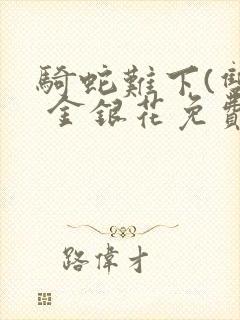 騎蛇難下(雙
金銀花免費
路偉才